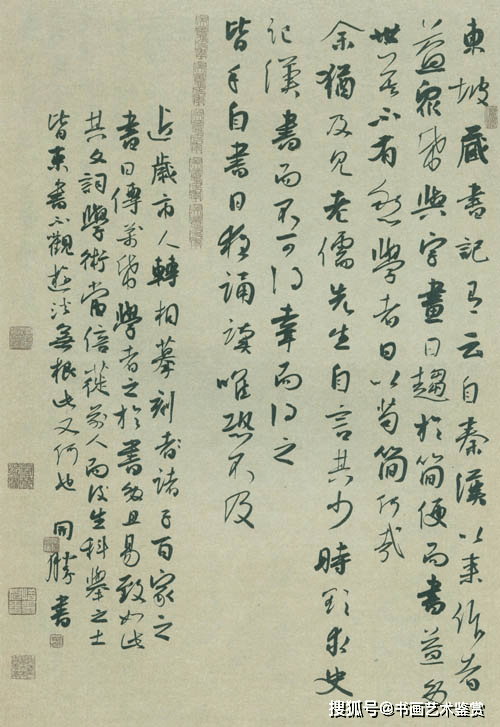 東坡藏書記有云自秦漢以来作者
益眾帋與字畫日趨於簡便而書益多
世莫不有然學者日以苟簡何哉
余猶及見老儒先生自言其少時欲求史
記漢書而不可得幸而得之
皆手自書日夜誦讀唯恐不及
近歲市人轉相摹刻者諸子百家之
書日傳萬帋學者之於書多且易致如此
其文詞學術當倍蓰前人而後生科舉之士
皆束書不觀遊談無根此又何也 同勝書
搜狐号@书画艺术鉴赏